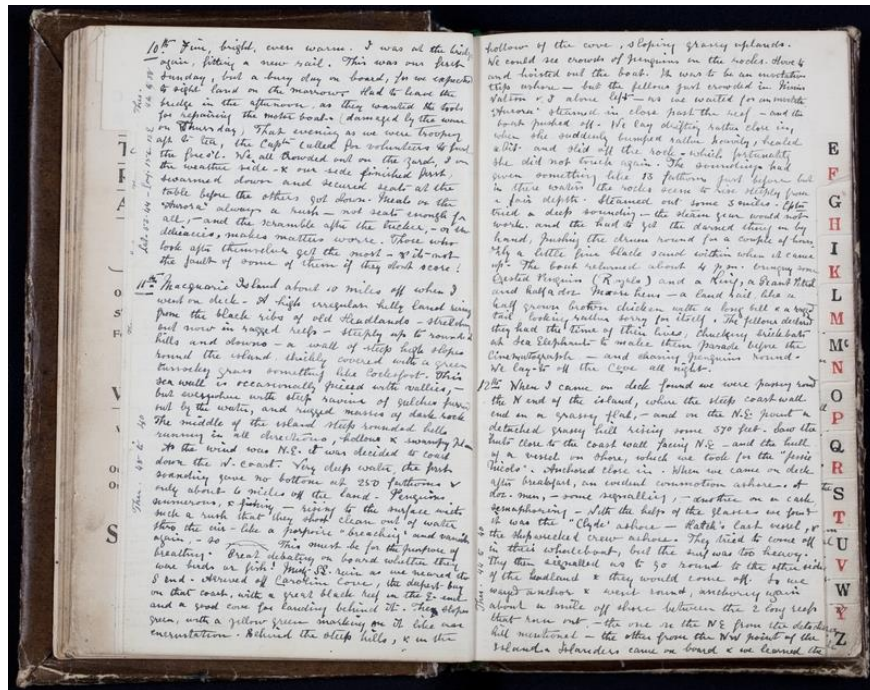 10th Fine, bright, even warm. I was at the bridge
again, fitting a new rail. This was our first
Sunday, but a busy day on board, for we expected
to sight land on the morrow. Had to leave the
bridge in the afternoon, as they wanted the tools
for repairing the motor boat. (damaged by the wave
on Thursday). That evening as we were trooping
aft to tea, the Captn called for volunteers to furl
the fores'l. We all crowded out on the yard, I on
the weather side - & our side finished first,
swarmed down and secured seats at the
table before the others got down. Meals on the
"Aurora" always a rush - not seats enough for
all, - and the scramble after the tucker, - or the
delicacies, makes matters worse. Those who
look after themselves get the most - & it's not
the fault of some of them if they don't score!
11th Macquarie Island about 10 miles off when I
went on deck - A high irregular hilly land rising
from the black ribs of old Headlands - stretching
out now in ragged reefs - steeply up to rounded
hills and downs - a wall of steep high slopes
round the island, thickly covered with a green
tussocky grass something like Cocksfoot. This
sea wall is occasionally pierced with vallies, -
but everywhere with steep ravines or gulches
out by the water, and rugged masses of dark rock
The middle of the island steep rounded hills
running in all directions, hollows & swampy
As the wind was N.E. it was decided to coast
down the coast. Very deep water, the first
sounding gave no bottom at 250 fathoms &
only about 1½ miles off the land. Penguins
numerous, & fishing - rising to the surface with
such a rush that they shoot clean out of water
thro the air - like a porpoise "breaching" and vanish
again, - so This must be for the purpose of
breathing. Great debating on board whether they
were birds or fish! rain as we neared the
S end. Arrived off Caroline Cove, the
on that coast, with a great black reef on the E. end
and a good cove for landing behind it. The slopes
green, with a yellow green marking on it like moss
encrustation. Behind the steep hills, & in the
hollow of the cove, sloping grassy uplands.
We could see crowds of penguins on the rocks. Hove to
and hoisted out the boat. It was to be an invitation
trip ashore - but the fellows just crowded in. Primus
Watson & I alone left - as we waited for an invite
"Aurora" steamed in close past the reef - and the
boat pushed off. We lay drifting rather close in,
when she suddenly bumped rather heavily, heeled
a bit - and slid off the rock - which fortunately
she did not touch again. The soundings had
given something like 13 fathoms just before but
in these waters the rocks seem to rise steeply from
a fair depth. Steamed out some 3 miles. Captn
tried a deep sounding - the steam gear would not
work, and the had to get the darned thing in by
hand, pushing the drum round for a couple of hours
Only a little fine black sand within when it came
up. The boat returned about 4 p.m. bringing some
Crested Penguins (Royals) and a King, a Giant Petrel
and half a doz. Moor hens - a land rail, like a
half grown broken chicken with a long bill & a ragged
tail, looking rather sorry for itself. The fellows declared
they had the time of their lives, chucking brickbats
at Sea Elephants to make them parade before the
Cinematograph - and chasing penguins round.
We lay-to off the Cove all night.
12th When I came on deck found we were passing round
the N end of the island, where the steep coast wall
end in a grassy flat, - and on the N.E. point a
detached grassy hill rising some 370 feet. Saw the
huts close to the coast wall facing N.E. - and the hull
of a vessel on shore, which we took for the "Jessie
Nicols". Anchored close in. When we came on deck
after breakfast, an evident commotion ashore. ½
doz. men, - some signalling, - another on a cask
semaphoring - With the help of the glasses we found
it was the "Clyde" ashore - Hatch's last vessel, &
the shipwrecked crew ashore. They tried to come off
in their whaleboat, but the surf was too heavy.
They then signalled us to go round to the other side
of the headland & they would come off. So we
weighed anchor & went round, anchoring again
about a mile off shore between the 2 long reefs
that run out, - the one on the N.E from the detached
hill mentioned - the other from the NW point of the
island. Islanders came on board & we learned the
E
F
G
H
I
K
L
M
Mc
N
O
P
Q
R
S
T
U
V
W
Y
Z